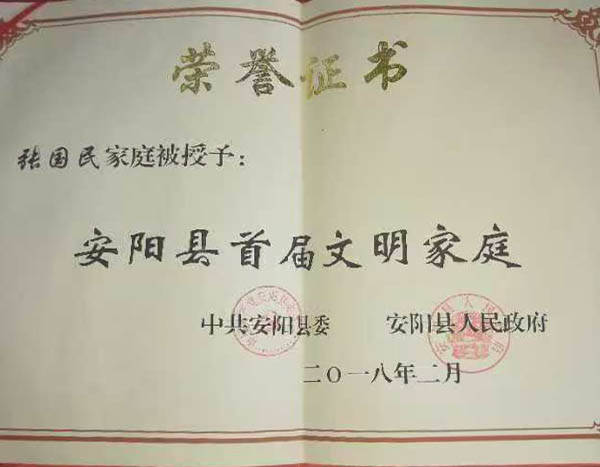 荣誉证书
张国民家庭被授予：
安阳县首届文明家庭
中共安阳县委 安阳县人民政府
二〇一八年二月